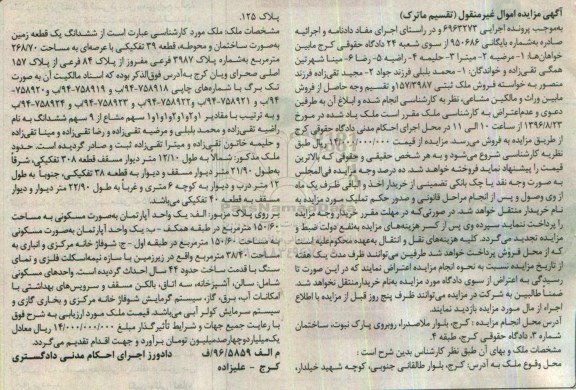 آگهی مزایده اموال غیرمنقول (تقسیم ماترک)
بموجب پرونده اجرایی ۶۹۶۳۲۷۳ و در راستای اجرای مفاد دادنامه و اجرائیه
صادره به‌شماره بایگانی ۹۵۰۶۸۶ از سوی شعبه ۲۴ دادگاه حقوقی کرج مابین
خواهان‌ها: ۱- مرضیه ۲- میترا ۳- حلیمه ۴- راضیه ۵- رضا ۶- مینا شهرتین
همگی تقی‌زاده و خواندگان: ۱- محمد بلبلی فرزند جواد ۲- مجید تقی‌زاده فرزند
منصور به خواسته فروش ملک ثبتی ۱۵۷/۳۹۸۷ و تقسیم وجه حاصل از فروش
مابین وراث و مالکین مشاعی، نظر به کارشناسی انجام شده و ابلاغ آن به طرفین
دعوی و عدم‌اعتراض به کارشناسی ملک مقرر است ملک یاد شده در مورخ
۱۳۹۶/۸/۲۳ از ساعت ۱۰ الی ۱۱ در محل اجرای احکام مدنی دادگاه حقوقی کرج
از طریق مزایده به فروش می‌رسد. مزایده از قیمت ۱۴/۰۰۰/۰۰۰/۰۰۰ ریال طبق
نظریه کارشناسی شروع می‌شود و به هر شخص حقیقی و حقوقی که بالاترین
قیمت را پیشنهاد نماید فروخته خواهد شد. ده درصد وجه مزایده فی‌المجلس
به صورت وجه نقد یا چک بانکی تضمینی از خریدار اخذ و الباقی ظرف یک ماه
از وی وصول و پس از انجام مراحل قانونی و صدور حکم تملیک مورد مزایده به
نام خریدار منتقل خواهد شد. در صورتی‌که در مهلت مقرر خریدار وجه مزایده
را پرداخت ننماید سپرده وی پس از کسر هزینه‌های مزایده به‌نفع دولت ضبط و
مزایده تجدید می‌گردد. کلیه هزینه‌های نقل و انتقال به‌عهده محکوم‌علیه است
که از محل فروش پرداخت خواهد شد طرفین می‌توانند ظرف مدت یک هفته
از تاریخ مزایده نسبت به نحوه انجام مزایده اعتراض نمایند که در این صورت تا
رسیدگی به اعتراض از سوی دادگاه مورد مزایده به‌نام خریدار منتقل نخواهد شد.
ضمنا طالبین به شرکت در مزایده می‌توانند ظرف پنج روز قبل از مزایده با اطلاع
اجراء از مال مورد مزایده بازدید نمایند.
آدرس محل انجام مزایده: کرج، بلوار ملاصدرا، روبروی پارک نبوت، ساختمان
شماره ۳، دادگاه حقوقی کرج، طبقه ۴.
مشخصات ملک و بهای آن طبق نظر کارشناس بدین شرح است:
محل وقوع ملک به آدرس: کرج، بلوار طالقانی جنوبی، کوچه شهید خیلدار،
پلاک ۱۲۵.
مشخصات ملک: ملک مورد کارشناسی عبارت است از ششدانگ یک قطعه زمین
به‌صورت ساختمان و محوطه، قطعه ۳۹ تفکیکی با عرصه‌ای به مساحت ۲۶۸/۷۰
مترمربع به‌شماره پلاک ۳۹۸۷ فرعی مفروز از پلاک ۸۴ فرعی از پلاک ۱۵۷
اصلی صحرای ویان کرج به‌آدرس فوق‌الذکر بوده که اسناد مالکیت آن به صورت
تک برگ با شماره‌های چاپی ۷۵۸۹۱۸-۹۴/ب و ۷۵۸۹۱۹-۹۴/ب و ۷۵۸۹۲۰-
۹۴/ب و ۷۵۸۹۲۱-۹۴/ب و ۷۵۸۹۲۲-۹۴/ب و ۷۵۸۹۲۳-۹۴/ب و ۷۵۸۹۲۴-۹۴/ب
و به ترتیب با مقادیر ۲و۱و۱و۱و۱و۱و۱ سهم مشاع از ۹ سهم ششدانگ به نام
راضیه تقی‌زاده و محمد بلبلی و مرضیه تقی‌زاده و رضا تقی‌زاده و مینا تقی‌زاده
و حلیمه خاتون تقی‌زاده و میترا تقی‌زاده ثبت و صادر گردیده است. حدود
ملک مذکور: شمالاً به طول ۱۲/۱۰ متر دیوار مسقف قطعه ۳۰۸ تفکیکی، شرقاً
به‌طول ۲۱/۹۰ متر دیوار مسقف و دیوار به قطعه ۳۸ تفکیکی، جنوباً به طول
۱۲ متر درب و دیوار به کوچه ۶ متری و غرباً به طول ۲۲/۹۰ متر دیوار و دیوار
مسقف به قطعه ۴۰ تفکیکی می‌باشد.
بر روی پلاک مزبور: الف: یک واحد آپارتمان به‌صورت مسکونی به مساحت
۱۵۰/۶۰ مترمربع در طبقه همکف - ب: یک واحد آپارتمان به‌صورت مسکونی
به مساحت ۱۵۰/۶۰ مترمربع در طبقه اول - ج: شوفاژ خانه مرکزی و انباری به
مساحت ۳۸/۴۰ مترمربع واقع در زیرزمین با سازه نیمه‌اسکلت فلزی و نمای
سنگ با قدمت ساخت حدود ۴۴ سال احداث گردیده است. واحدهای مسکونی
شامل: سالن، آشپزخانه، سه اتاق، بالکن مسقف و سرویس‌های بهداشتی با
امکانات آب، برق، گاز، سیستم گرمایش شوفاژ خانه مرکزی و بخاری گازی و
سیستم سرمایش کولر آبی می‌باشد. قیمت ملک مورد ارزیابی به شرح فوق
با رعایت جمیع جهات و شرایط تأثیرگذار مبلغ ۱۴/۰۰۰/۰۰۰/۰۰۰ ریال معادل
یک‌میلیارد و چهارصد میلیون تومان برآورد و جهت اقدام تقدیم می‌گردد.
م الف ۹۶/۵۸۵۹/ف دادورز اجرای احکام مدنی دادگستری
کرج - علیزاده